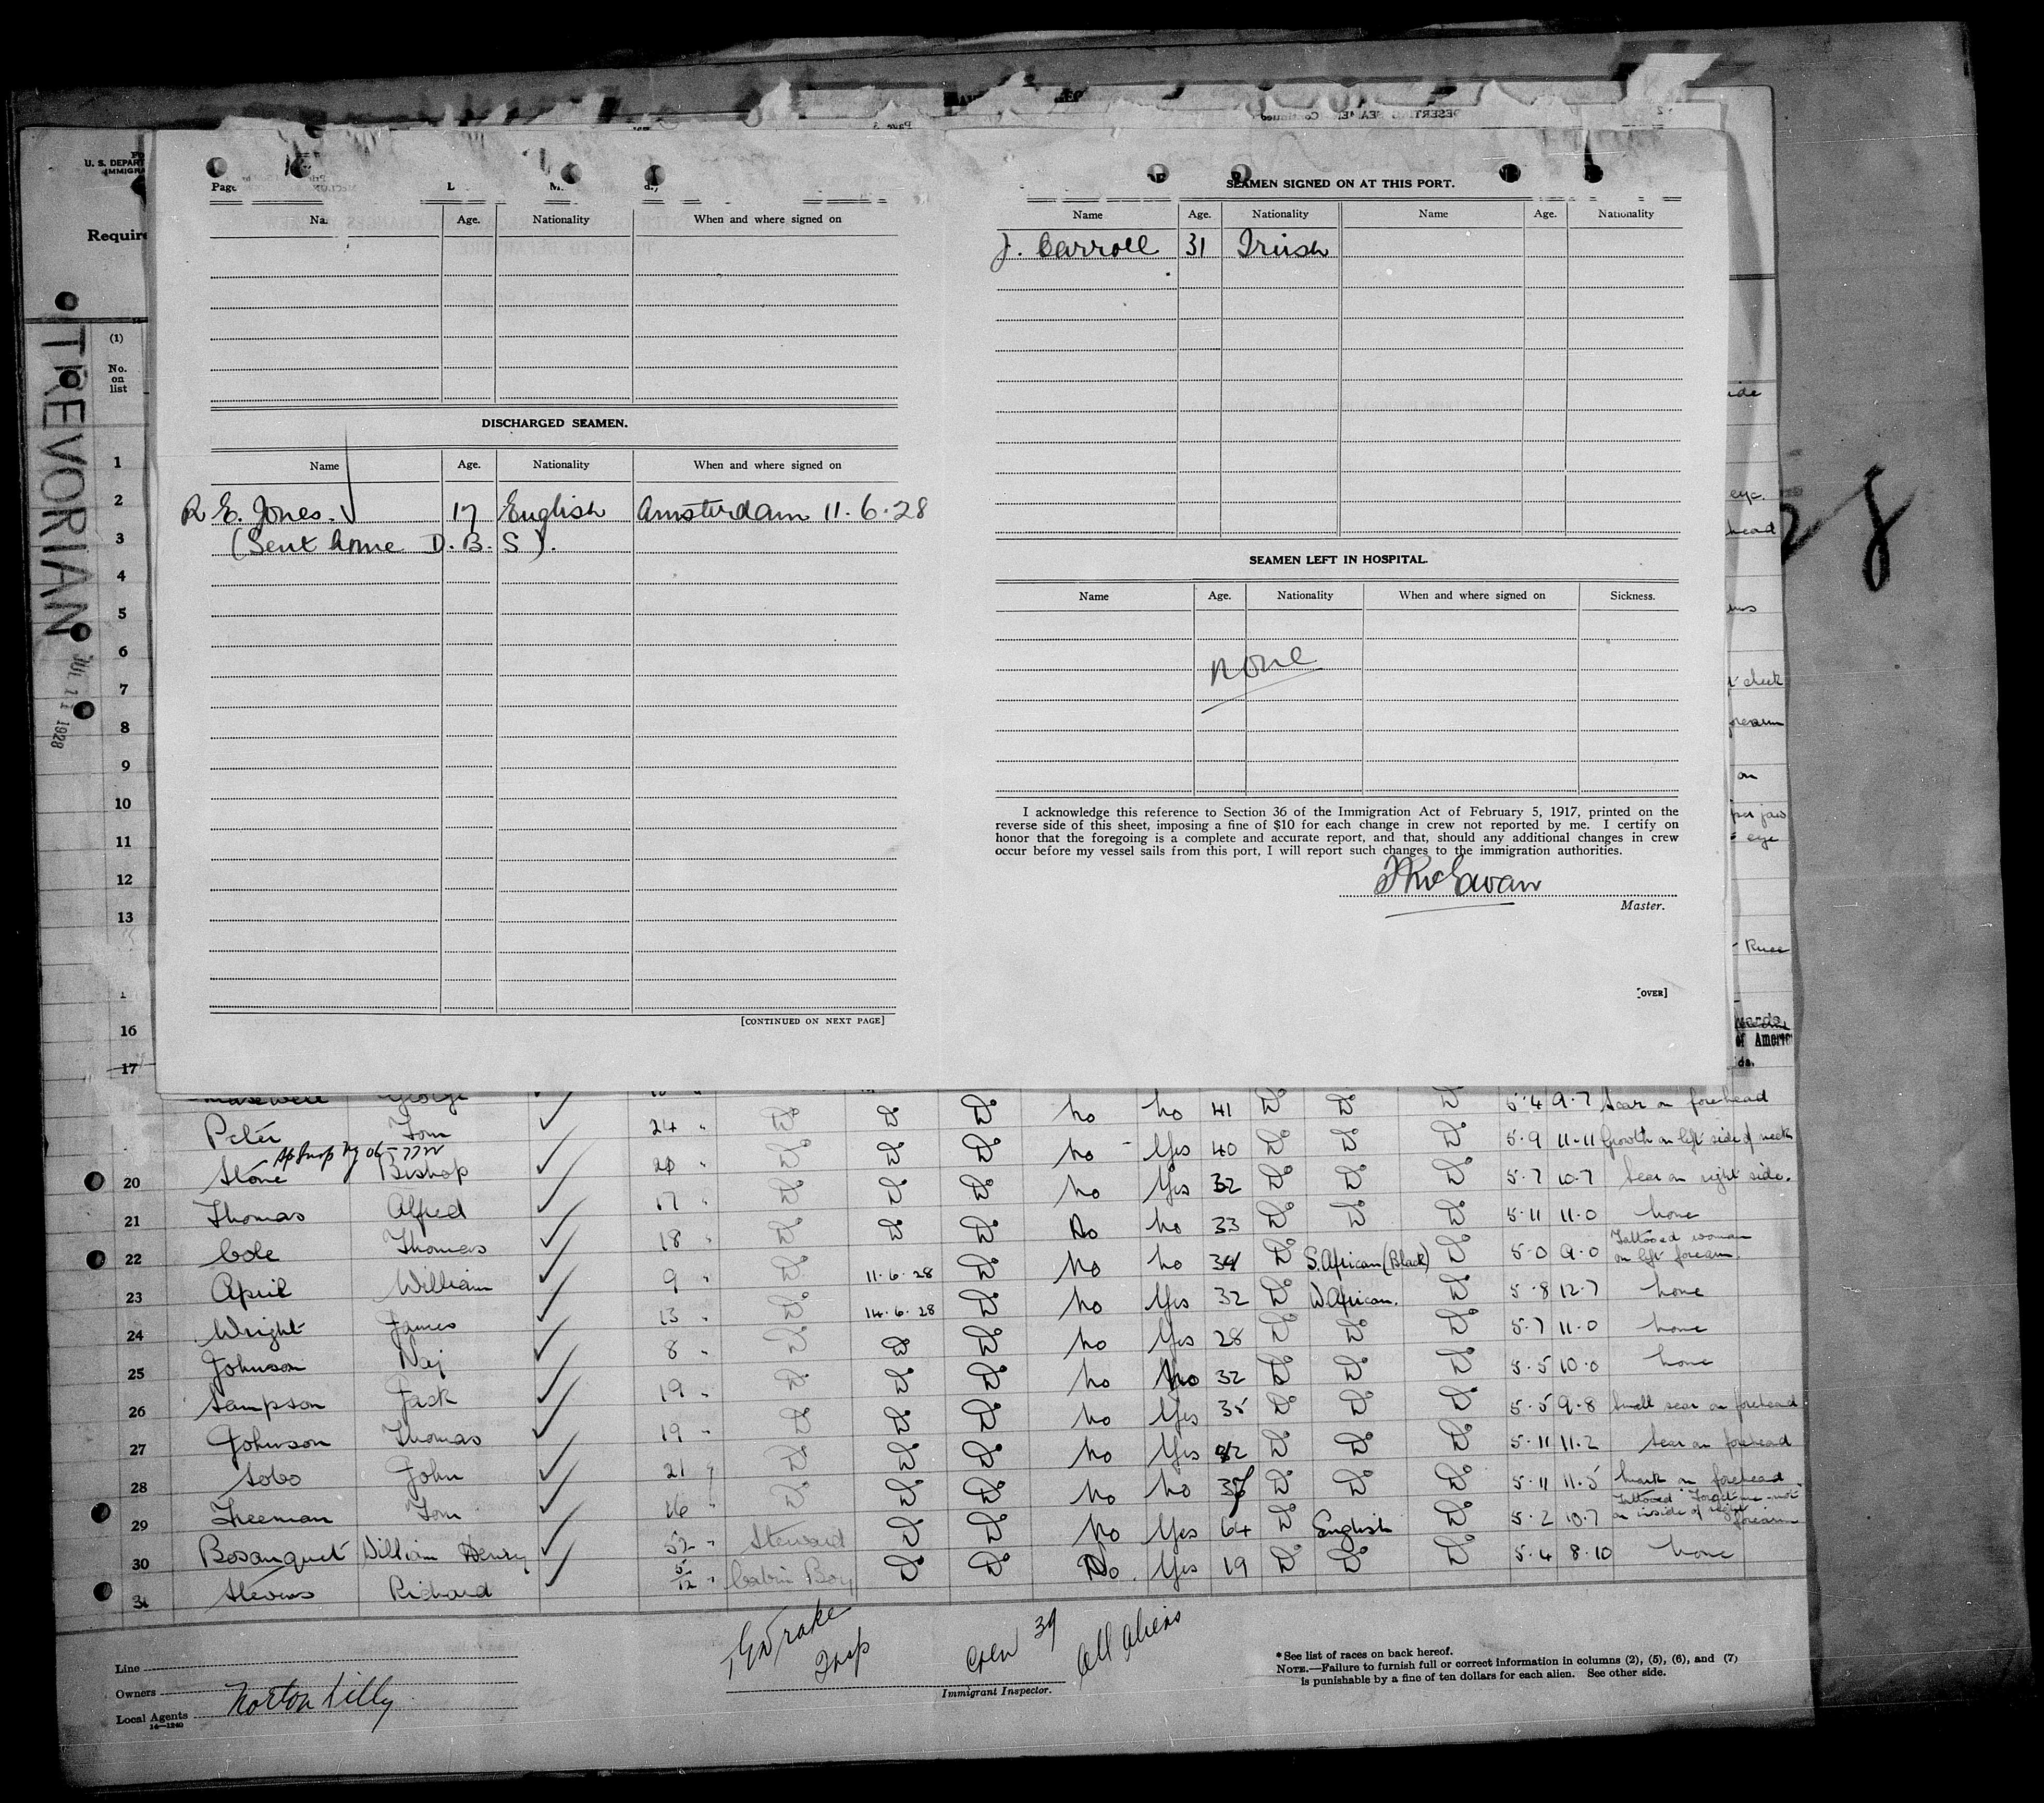 U. S. DEPART
IMMIGRA
Require
TREVORIAN
JUL 11 1928
(1)
No.
on
list
1
2
3
4
5
6
7
8
9
10
11
12
13
16
17
Page
Name Age. Nationality When and where signed on
DISCHARGED SEAMEN.
Name Age. Nationality When and where signed on
R E. Jones. 17 English Amsterdam 11.6.28
(Sent home D. B. S).
[CONTINUED ON NEXT PAGE]
SEAMEN SIGNED ON AT THIS PORT.
Name Age. Nationality Name Age. Nationality
J. Carroll 31 Irish
SEAMEN LEFT IN HOSPITAL.
Name Age. Nationality When and where signed on Sickness.
none
I acknowledge this reference to Section 36 of the Immigration Act of February 5, 1917, printed on the
reverse side of this sheet, imposing a fine of $10 for each change in crew not reported by me. I certify on
honor that the foregoing is a complete and accurate report, and that, should any additional changes in crew
occur before my vessel sails from this port, I will report such changes to the immigration authorities.
Master.
[OVER]
28
eye.
head
cheek
forearm
on
jaw
eye
Knee
of Americ
George no no 41 Do Do Do 5·4 9·7 Scar on forehead
Peter Tom 24 " Do Do Do no Yes 40 Do Do Do 5·9 11·11 Growth on left side of neck
20 Stone Bishop 20 " Do Do Do no Yes 32 Do Do Do 5·7 10·7 Scar on right side.
21 Thomas Alfred 17 " Do Do Do No no 33 Do Do Do 5·11 11·0 none
22 Cole Thomas 18 " Do Do Do no no 34 Do S. African (Black) Do 5·0 9·0 Tattooed woman on left forearm.
23 April William 9 " Do 11·6·28 Do no Yes 32 Do W African. Do 5·8 12·7 none
24 Wright James 13 " Do 14·6·28 Do no Yes 28 Do Do Do 5·7 11·0 none
25 Johnson Naj 8 " Do Do Do no No 32 Do Do Do 5·5 10·0 none
26 Sampson Jack 19 " Do Do Do no Yes 35 Do Do Do 5·5 9·8 Small scar on forehead
27 Johnson Thomas 19 " Do Do Do no Yes 32 Do Do Do 5·11 11·2 Scar on forehead
28 Sobo John 21 " Do Do Do no no 37 Do Do Do 5·11 11·5 mark on forehead
29 Freeman Tom 16 " Do Do Do No Yes 64 Do English Do 5·2 10·7 Tattooed "Forget me not" on inside of right forearm
30 Bosanquet William Henry 52 " Steward Do Do No. Yes 19 Do Do Do 5·4 8·10 none
31 Stevens Richard 5/12 " Cabin Boy Do Do
Line
Owners
Local Agents Norton Lilly
14—1240
Drake
Insp
Crew 39
All Aliens
Immigrant Inspector.
*See list of races on back hereof.
NOTE.—Failure to furnish full or correct information in columns (2), (5), (6), and (7)
is punishable by a fine of ten dollars for each alien. See other side.